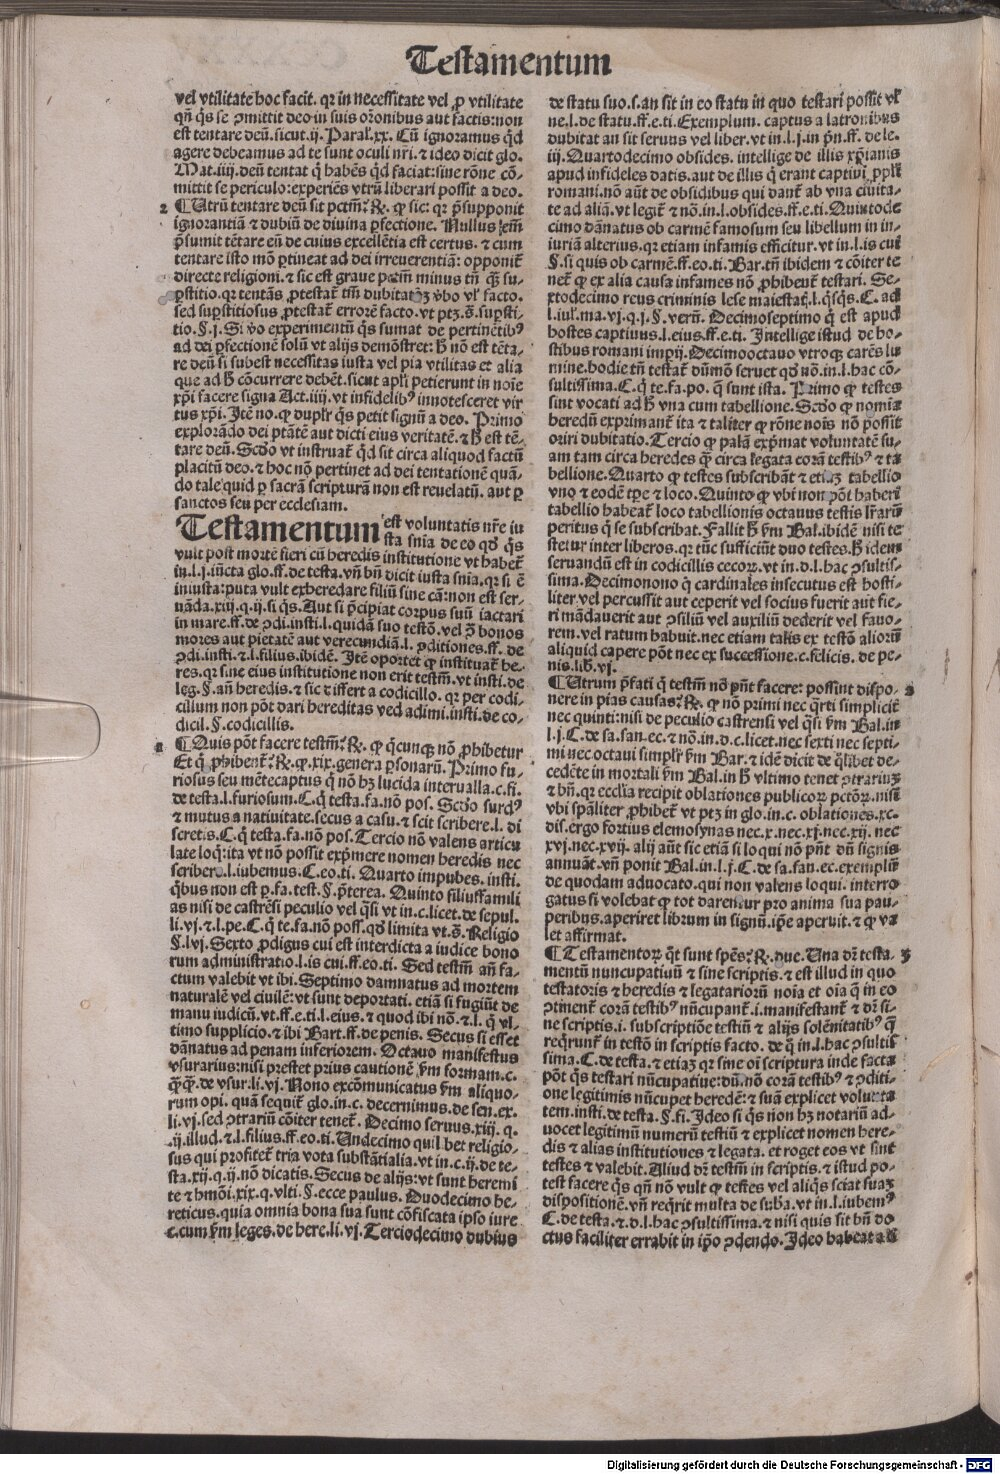 Testamentum
vel vtilitate hoc facit. qꝛ in necessitate vel ꝓ vtilitate
qñ q̇s se ꝓmittit deo in suis oꝛõnibus aut factis: non
est tentare deũ. sicut.ij. Paral̓.xx. Cũ ignoramus q̇d
agere debeamus ad te sunt oculi nr̃i. ⁊ ideo dicit glo.
Mat.iiij. deũ tentat q̇ habẽs q̇d faciat: sine rõne cõ-
mittit se periculo: experiẽs vtrũ liberari possit a deo.
2 ¶ Utrũ tentare deũ sit pctm̃: ℞. ꝙ sic: qꝛ p̃supponit
ignorantiã ⁊ dubiũ de diuina ꝑfectione. Nullus em̃
p̃sumit tẽtare eũ de cuius excellẽtia est certus. ⁊ cum
tentare isto mõ ꝑtineat ad dei irreuerentiã: opponit̃
directe religioni. ⁊ sic est graue pctm̃ minus tñ q̃ su-
ꝑstitio. qꝛ tentãs ꝓtestat̃ tm̃ dubitatõꝫ v̓bo vl̓ facto.
sed suꝑstitiosus ꝓtestat̃ errorẽ facto. vt ptꝫ.s̃. suꝑsti-
tio.§.j. Si v̓o experimentũ q̇s sumat de pertinẽtibꝰ
ad dei ꝑfectionẽ solũ vt alijs demõstret: h̓ nõ est tẽta-
re deũ si subest necessitas iusta vel pia vtilitas et alia
que ad h̓ cõcurrere debẽt. sicut apl̓i petierunt in noĩe
xp̃i facere signa Act.iiij. vt infidelibꝰ innotesceret vir
tus xp̃i. Itẽ no. ꝙ dupl̓r q̇s petit signũ a deo. Primo
explorãdo dei ptãtẽ aut dicti eius veritatẽ. ⁊ h̓ est tẽ-
tare deũ. Scd̓o vt instruat̃ q̇d sit circa aliquod factũ
placitũ deo. ⁊ hoc nõ pertinet ad dei tentationẽ quã-
do tale quid ꝑ sacrã scripturã non est reuelatũ. aut ꝑ
sanctos seu per ecclesiam.
Testamentum est voluntatis nr̃e iu
sta snĩa de eo qd̓ q̇s
vult post mortẽ fieri cũ heredis institutione vt habet̃
in.l.j. iũcta glo.ff. de testa. vñ bñ dicit iusta snĩa. qꝛ si ẽ
iniusta: puta vult exheredare filiũ sine cã: non est ser-
uãda.xiij.q.ij. si q̇s. Aut si p̃cipiat corpus suũ iactari
in mare.ff. de ꝯdi. insti.l. quidã suo testõ. vel ꝯ̃ bonos
mores aut pietatẽ aut verecundiã.l. ꝯditiones.ff. de
ꝯdi. insti. ⁊.l. filius. ibidẽ. Itẽ oportet ꝙ instituat̃ he-
res. qꝛ sine eius institutione non erit testm̃. vt insti. de
leg.§. añ heredis. ⁊ sic differt a codicillo. qꝛ per codi-
cillum non põt dari hereditas vel adimi. insti. de co-
dicil.§. codicillis.
1 ¶ Quis põt facere testm̃: ℞. ꝙ q̇cunqꝫ nõ ꝓhibetur
Et q̇ ꝓhibent̃: ℞. ꝙ.xix. genera ꝑsonarũ. Primo fu-
riosus seu mẽtecaptus q̇ nõ hꝫ lucida interualla.c.fi.
de testa.l. furiosum. C. q̇ testa. fa. nõ pos. Scd̓o surdꝰ
⁊ mutus a natiuitate. secus a casu. ⁊ scit scribere.l. di
scretis. C. q̇ testa. fa. nõ pos. Tercio nõ valens articu
late loq̇: ita vt nõ possit exp̃mere nomen heredis nec
scribere.l. iubemus. C. eo.ti. Quarto impubes. insti.
q̇bus non est ꝑ. fa. test.§. p̃terea. Quinto filiusfamili
as nisi de castrẽsi peculio vel q̃si vt in.c. licet. de sepul.
li.vj. ⁊.l. pe. C. q̇ te. fa. nõ poss. qd̓ limita vt.s̃. Religio
§.lvj. Sexto ꝓdigus cui est interdicta a iudice bono
rum administratio.l. is cui.ff. eo.ti. Sed testm̃ añ fa-
ctum valebit vt ibi. Septimo damnatus ad mortem
naturalẽ vel ciuilẽ: vt sunt deportati. etiã si fugiũt de
manu iudicũ. vt.ff. e.ti.l. eius. ⁊ quod ibi nõ. ⁊.l. q̇ vl-
timo supplicio. ⁊ ibi Bart.ff. de penis. Secus si esset
dãnatus ad penam inferiorem. Octauo manifestus
vsurarius: nisi prestet prius cautionẽ ẜm formam.c.
q̃q̃. de vsur. li.vj. Nono excõmunicatus ẜm aliquo-
rum opi. quã sequit̃ glo. in.c. decernimus. de sen. ex.
li.vj. sed ꝯtrariũ cõiter tenet̃. Decimo seruus.xiij.q.
.ij. illud. ⁊.l. filius.ff. eo.ti. Undecimo quil̓bet religio-
sus qui profitet̃ tria vota substãtialia. vt in.c.ij. de te-
sta.xij.q.ij. nõ dicatis. Secus de alijs: vt sunt heremi
te ⁊ hmõi.xix.q. vlti.§. ecce paulus. Duodecimo he-
reticus. quia omnia bona sua sunt cõfiscata ipso iure
c. cum ẜm leges. de here. li.vj. Terciodecimo dubius
de statu suo.s. an sit in eo statu in quo testari possit vl̓
ne.l. de statu.ff. e.ti. Exemplum. captus a latronibus
dubitat an sit seruus vel liber. vt in.l.j. in pñ.ff. de le.
iij. Quartodecimo obsides. intellige de illis xp̃ianis
apud infideles datis. aut de illis q̇ erant captiui pp̃li
romani. nõ aũt de obsidibus qui dant̃ ab vna ciuita-
te ad aliã. vt legit̃ ⁊ nõ. in.l. obsides.ff. e.ti. Quintode
cimo dãnatus ob carmẽ famosum seu libellum in in-
iuriã alterius. qꝛ etiam infamis efficitur. vt in.l. is cui
§. si quis ob carmẽ.ff. eo.ti. Bar. tñ ibidem ⁊ cõiter te
net̃ ꝙ ex alia causa infames nõ ꝓhibent̃ testari. Se-
xtodecimo reus criminis lese maiestatꝭ.l. q̇sq̇s. C. ad
l. iul̓. ma.vj.q.j.§. verũ. Decimoseptimo q̇ est apud
hostes captiuus.l. eius.ff. e.ti. Intellige istud de ho-
stibus romani imperij. Decimooctauo vtroqꝫ carẽs lu
mine. hodie tñ testat̃ dũmõ seruet qd̓ nõ. in.l. hac cõ-
sultissima. C. q̇ te. fa. po. q̃ sunt ista. Primo ꝙ testes
sint vocati ad h̓ vna cum tabellione. Scd̓o ꝙ nomina
heredũ exprimant̃ ita ⁊ taliter ꝙ rõne noĩs nõ possit
oriri dubitatio. Tercio ꝙ palã exp̃mat voluntatẽ su-
am tam circa heredes q̃ circa legata corã testibꝰ ⁊ ta
bellione. Quarto ꝙ testes subscribãt ⁊ etiaꝫ tabellio
vno ⁊ eodẽ tp̃e ⁊ loco. Quinto ꝙ vbi non põt haberi
tabellio habeat̃ loco tabellionis octauus testis lr̃arũ
peritus q̇ se subscribat. Fallit h̓ ẜm Bal. ibidẽ nisi te
stetur inter liberos. qꝛ tũc sufficiũt duo testes. h̓ idem
seruandũ est in codicillis cecoꝝ. vt in.d.l. hac ꝯsultis-
sima. Decimonono q̇ cardinales insecutus est hosti-
liter. vel percussit aut ceperit vel socius fuerit aut fie-
ri mãdauerit aut ꝯsiliũ vel auxiliũ dederit vel fauo-
rem. vel ratum habuit. nec etiam talis ex testõ aliorũ
aliquid capere põt nec ex successione.c. felicis. de pe-
nis. lib̓.vj.
¶ Utrum p̃fati q̇ testm̃ nõ pñt facere: possint dispo- 2
nere in pias causas: ℞. ꝙ nõ primi nec q̃rti simplicit̃
nec quinti: nisi de peculio castrensi vel q̃si ẜm Bal. in
l.j. C. de sa. san. ec. ⁊ nõ. in.d.c. licet. nec sexti nec septi-
mi nec octaui simpl̓r ẜm Bar. ⁊ idẽ dicit de q̃libet de-
cedẽte in mortali ẜm Bal. in h̓ vltimo tenet ꝯtrariuꝫ
⁊ bñ. qꝛ ecclĩa recipit oblationes publicoꝝ pctõꝝ. nisi
vbi sp̃aliter ꝓhibet̃ vt ptꝫ in glo. in.c. oblationes.xc.
dis. ergo fortius elemosynas nec.x. nec.xj. nec.xij. nec
xvj. nec.xvij. alij aũt sic etiã si loqui nõ pñt dũ signis
annuãt. vñ ponit Bal. in.l.j. C. de sa. fan. ec. exemplũ
de quodam aduocato. qui non valens loqui. interro
gatus si volebat ꝙ tot darentur pro anima sua pau-
peribus. aperiret librum in signũ. ip̃e aperuit. ⁊ ꝙ va
let affirmat.
¶ Testamentoꝝ q̇t sunt sp̃es: ℞. due. Una dr̃ testa- 3
mentũ nuncupatiuũ ⁊ sine scriptis. ⁊ est illud in quo
testatoris ⁊ heredis ⁊ legatariorũ noĩa et oĩa q̃ in eo
ꝯtinent̃ corã testibꝰ nũcupant̃.i. manifestant̃ ⁊ dr̃ si-
ne scriptis.i. subscriptiõe testiũ ⁊ alijs solẽnitatibꝰ q̃
req̇runt̃ in testõ in scriptis facto. de q̇ in.l. hac ꝯsultis
sima. C. de testa. ⁊ etiaꝫ qꝛ sine oĩ scriptura inde facta
põt q̇s testari nũcupatiue: dũ nõ corã testibꝰ ⁊ ꝯditi-
one legitimis nũcupet heredẽ: ⁊ suã explicet volunta
tem. insti. de testa.§. fi. Ideo si q̇s non hꝫ notariũ ad-
uocet legitimũ numerũ testiũ ⁊ explicet nomen here-
dis ⁊ alias institutiones ⁊ legata. et roget eos vt sint
testes ⁊ valebit. Aliud dr̃ testm̃ in scriptis. ⁊ istud po-
test facere q̇s qñ nõ vult ꝙ testes vel aliq̇s sciat suaꝫ
dispositionẽ. vñ req̇rit multa de sub̓a. vt in.l. iubemꝰ
C. de testa. ⁊.d.l. hac ꝯsultissima. ⁊ nisi quis sit bñ do
ctus faciliter errabit in ip̃o ꝯdendo. Ideo habeat ad
Digitalisierung gefördert durch die Deutsche Forschungsgemeinschaft - DFG